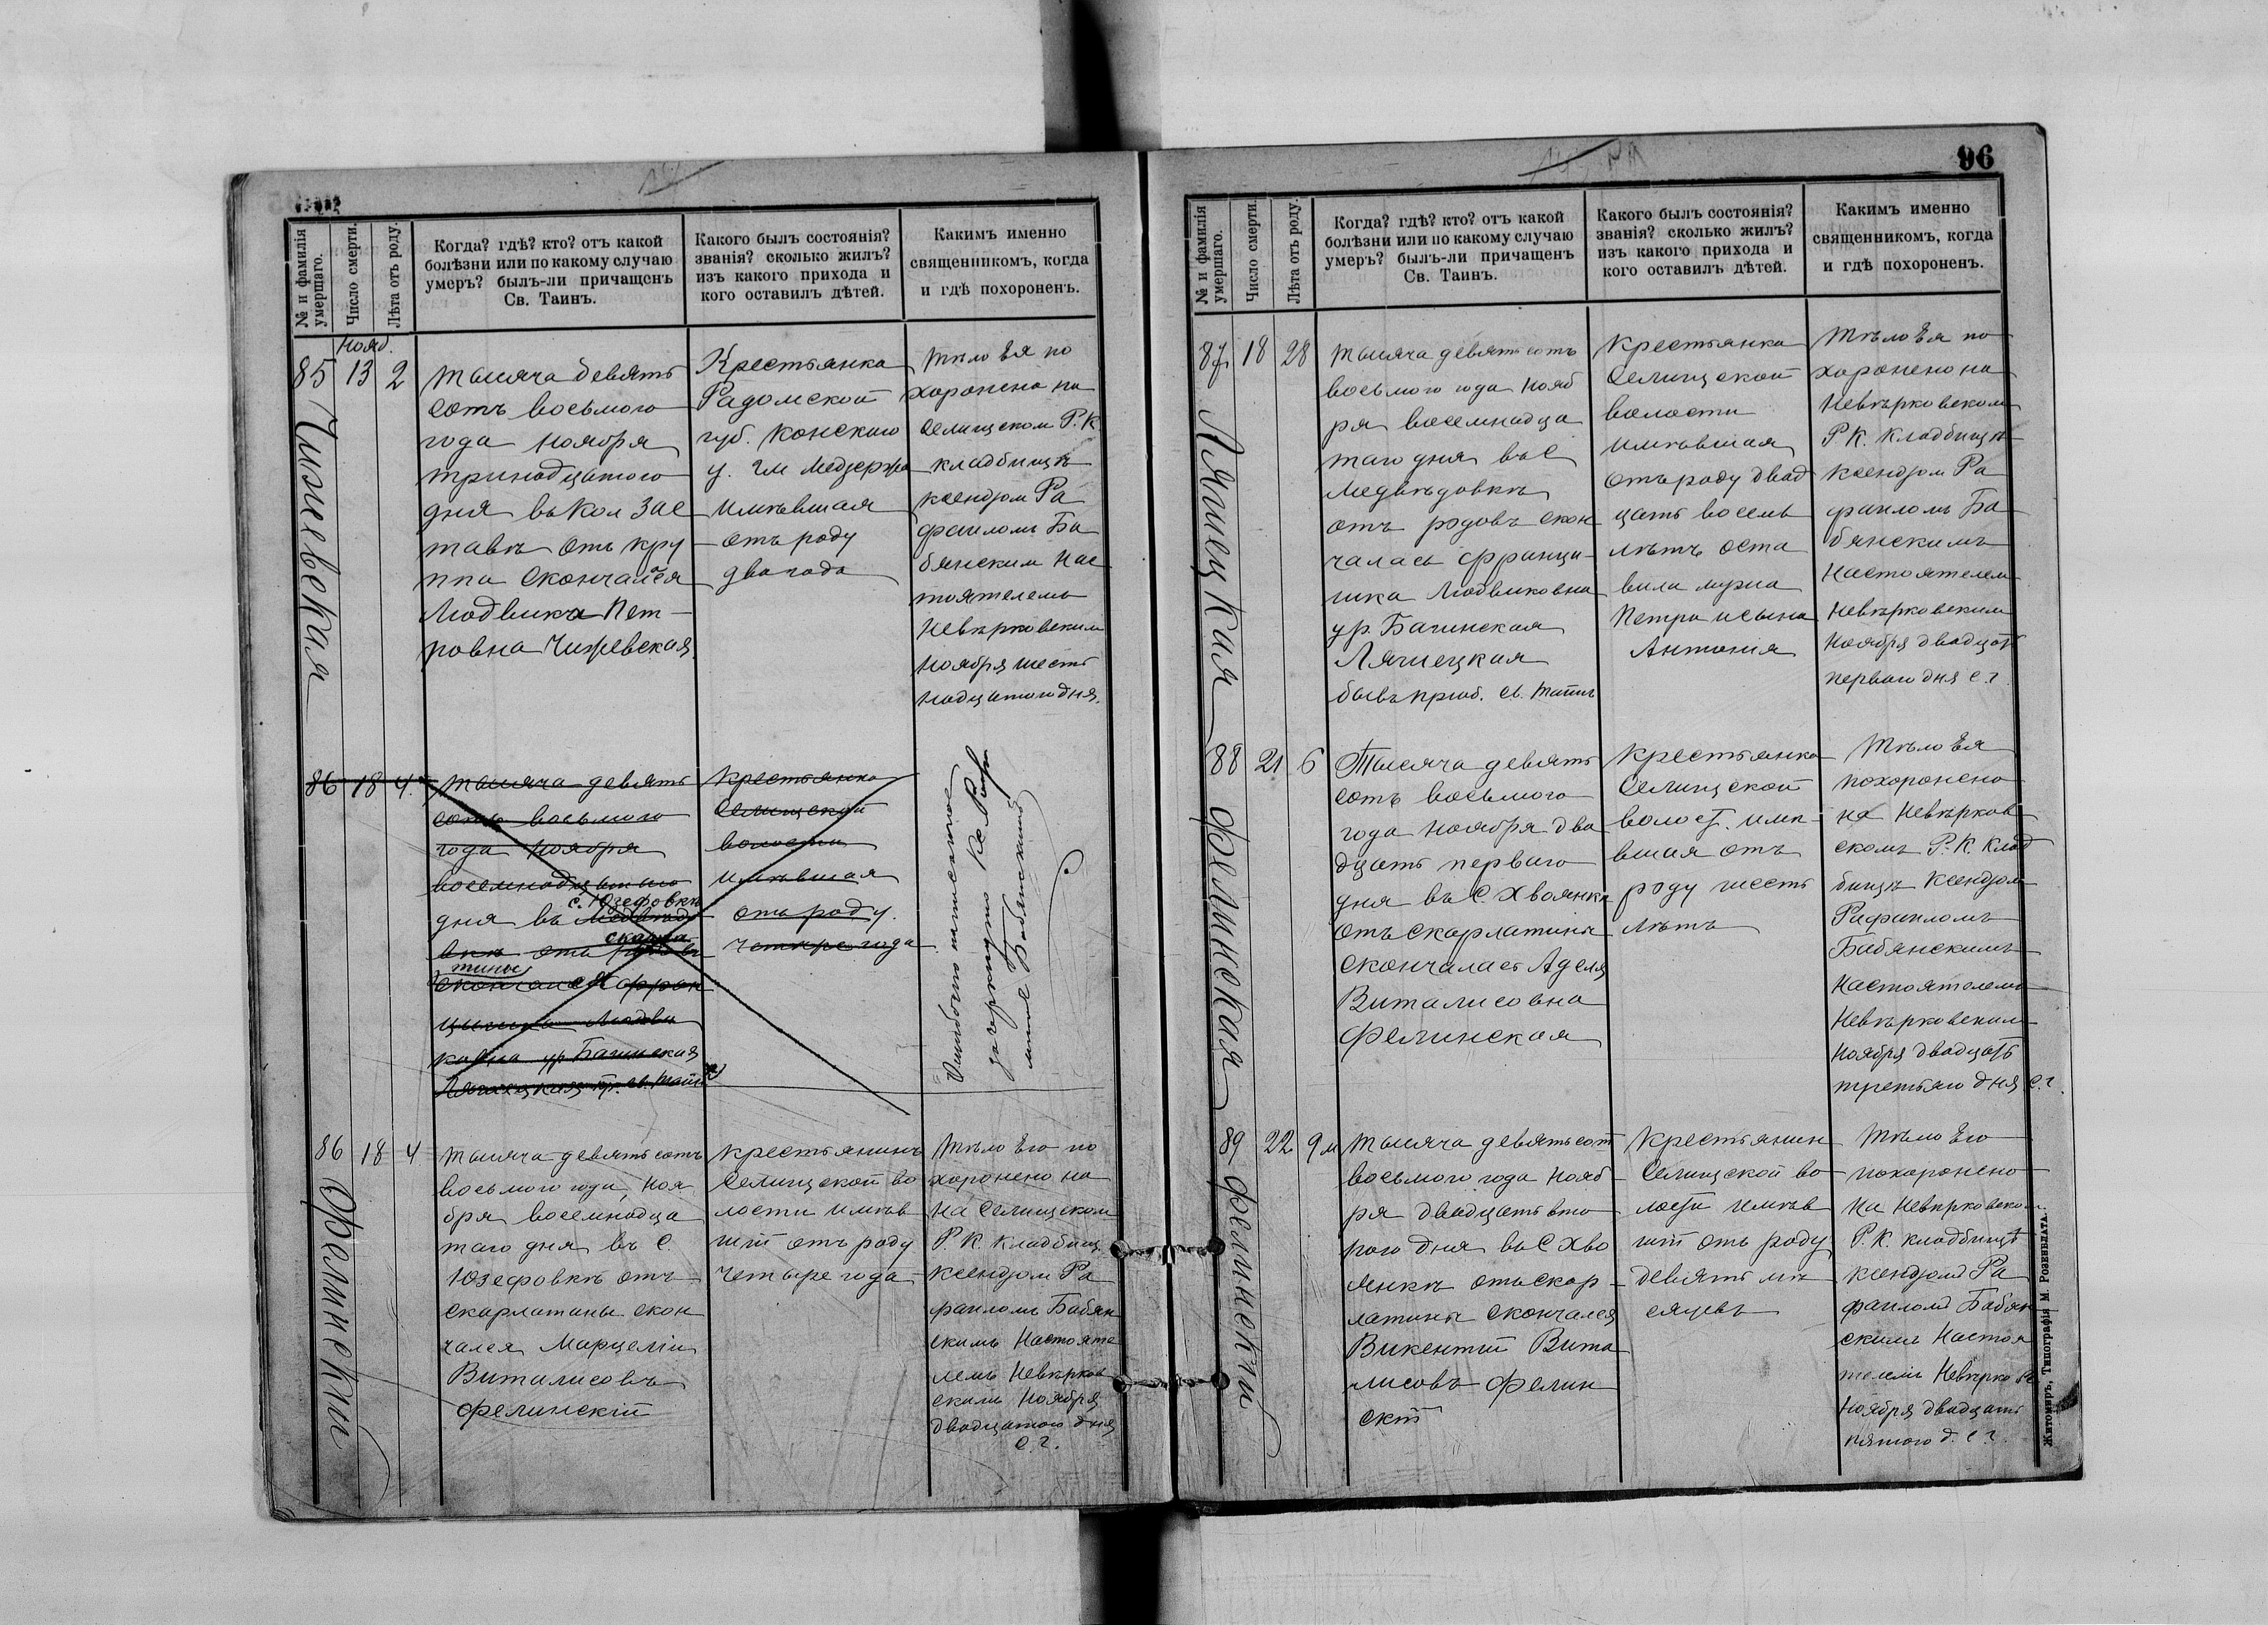 96
№ и фамилія умершаго.
Число смерти.
Лѣта отъ роду.
Когда? гдѣ? кто? отъ какой
болѣзни или по какому случаю
умеръ? былъ-ли причащенъ
Св. Таинъ.
Какого былъ состоянія?
званія? сколько жилъ?
изъ какого прихода и
кого оставилъ дѣтей.
Каким‌ъ именно
священникомъ, когда
и гдѣ похороненъ.
Нояб.
85 13 2
Чижевская
тысяча девять
сотъ восьмого
года ноября
тринадцатого
дня въ Кол Зас
тавкѣ отъ кру
ппа скончалася
Людвика Пет-
ровна Чижевская.
Крестьянка
Радомской
губ. Конскаго
у. гм
имѣвшая
отъ роду
два года
Тѣло Ея по
хоронено на
Селищском Р. К
кладбищѣ
ксендзом Ра
фаилом Ба
бянским Нас
тоятелемъ
Невѣрковским
ноября шест
надцатого дня.
86 18 4
тысяча девять
сотъ восьмого
года ноября
восемнадцатаго
с. Юзефовкѣ
дня въ Медвѣдо
скарла
вкѣ отъ родовъ
тины
скончалася Фран
цишка Людви
ковна ур. Багинская
Лячецкая пр. св. таин
крестьянка
Селищской
волости
имѣвшая
отъ роду.
четыре года
Ошибочно написанное
зачеркнуто Кс. Рафа
илъ Бабянский
86 18 4
Фелинский
тысяча девятьсотъ
восьмого года, ноя
бря восемнадца
таго дня въ С.
Юзефовкѣ отъ
скарлатины скон
чался Марцелій
Виталисовъ
Фелинскій
крестьянинъ
Селищской во
лости имѣв
шій отъ роду
четыре года
Тѣло Его по
хоронено на
на Селищском
Р. К. кладбищ.
ксендзом Ра
фаилом Бабян
скимъ Настояте
лемъ Невѣрков
скимъ Ноября
двадцатого дня
С. г.
№ и фамилія умершаго.
Число смерти.
Лѣта отъ роду.
Когда? гдѣ? кто? отъ какой
болѣзни или по какому случаю
умеръ? былъ-ли причащенъ
Св. Таинъ.
Какого былъ состоянія?
званія? сколько жилъ?
изъ какого прихода и
кого оставилъ дѣтей.
Какимъ именно
священникомъ, когда
и гдѣ похороненъ.
87 18 28
Лячецкая
тысяча девятьсотъ
восьмого года нояб
ря восемнадца
таго дня въ С
Медвѣдовкѣ
отъ родовъ скон
чалась Франци-
шка Людвиковна
ур. Багинская
Лячецкая
бывъ приоб. св. таинъ
крестьянка
Селищской
волости
имѣвшая
отъ роду двад
цать восемь
лѣтъ оста
вила мужа
Петра и сына
Антонія
Тѣло Ея по
хоронено на
Невѣрковском
Р. К. кладбищѣ
ксендзом Ра
фаиломъ Ба
бянскимъ
Настоятелем
Невѣрковским
ноября двадцат
первого дня с. г.
88 21 6
Фелинская
Тысяча девять
сотъ восьмого
года ноября два
дцать первого
дня въ С Хвоянкѣ
отъ скарлатины
скончалась Аделя
Виталисовна
Фелинская
крестьянка
Селищской
волост. имѣ
вшая отъ
роду шесть
лѣтъ
Тѣло Ея
похоронено
на Невѣрков
скомъ Р. К. клад
бищѣ ксендзом
Рафаиломъ
Бабянскимъ
Настоятелемъ
Невѣрковским
ноября двадцать
третьяго дня с. г.
89 22 9 м
Фелинский
тысяча девятьсот
восьмого года нояб
ря двадцать вто
рого дня въ С Хво
янкѣ отъ скар
латины скончался
Викентій Вита
лисовъ Фелин
скій
крестьянин
Селищской во
лости имѣв
шій отъ роду
девять мѣ
сяцевъ
Тѣло Его
похоронено
на Невѣрковском
Р. К. кладбищѣ
ксендзомъ Ра
фаиломъ Бабян
скимъ Настоя
телемъ Невѣрков
ноября двадцать
пятого д. с. г.
Житомиръ, Типографія М. Розенблата.